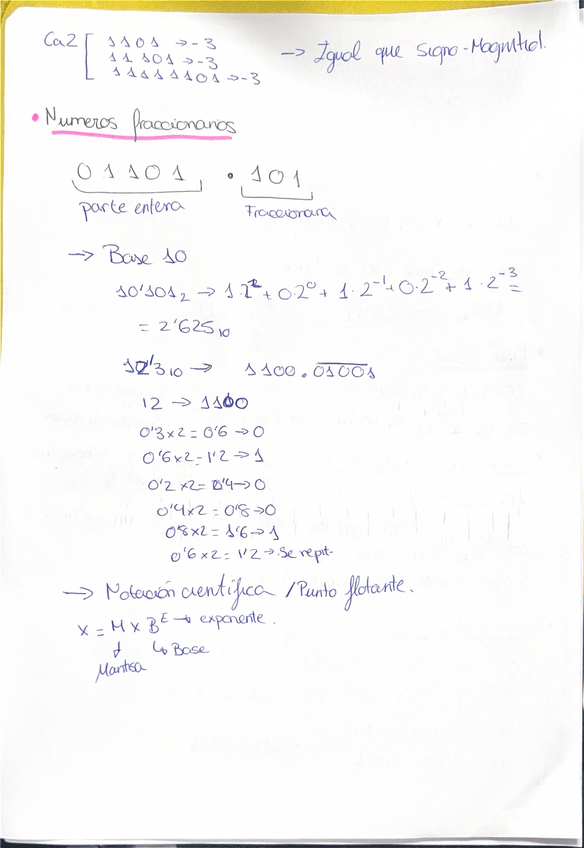 Ca2 [ 1101 → -3
11101 → -3
11111101 → -3
→ Igual que signo-Magnitud.
• Numeros fraccionarios
01101 . 101
parte entera Fraccionaria
→ Base 10
10'101₂ → 1·2² + 0·2⁰ + 1·2⁻¹ + 0·2⁻² + 1·2⁻³ =
= 2'625₁₀
12'3₁₀ → 1100.01001
12 → 1100
0'3x2 = 0'6 → 0
0'6x2 = 1'2 → 1
0'2x2 = 0'4 → 0
0'4x2 = 0'8 → 0
0'8x2 = 1'6 → 1
0'6x2 = 1'2 → Se repit-
→ Notación científica / Punto flotante.
X = M x Bᴱ → exponente.
↓ ↳ Base
Mantisa